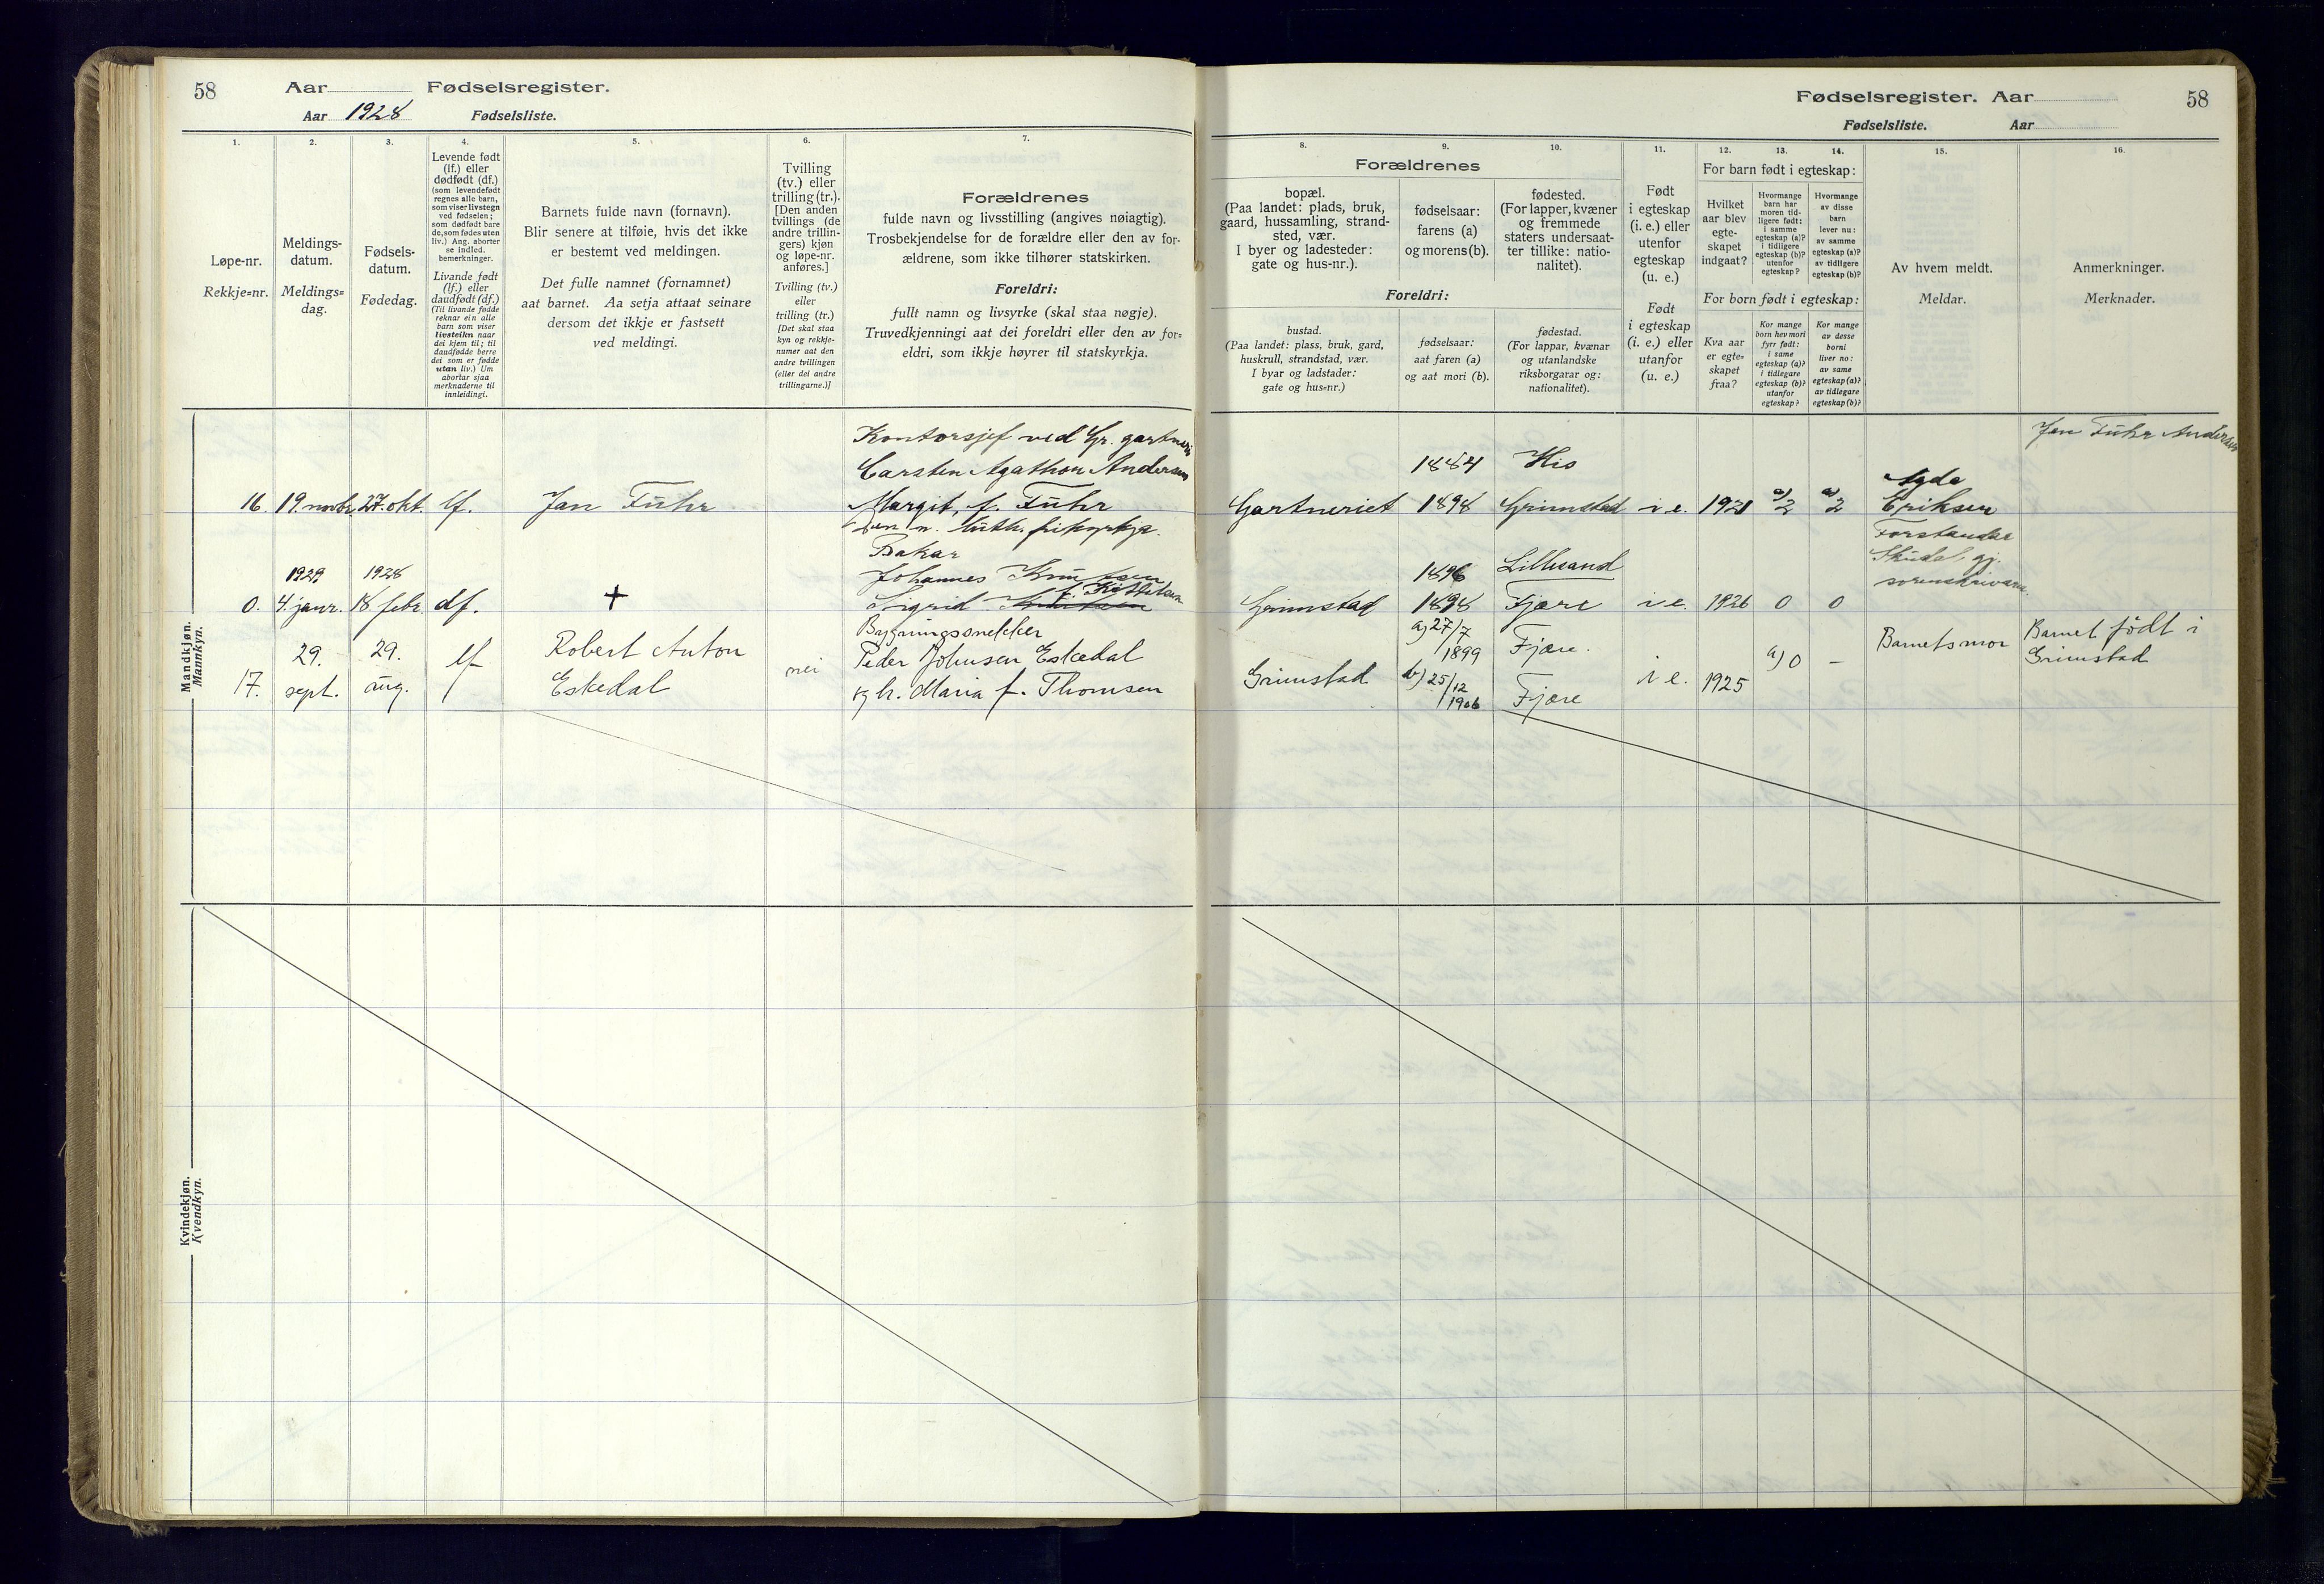 58
Aar Fødselsregister.
Aar 1928 Fødselsliste.
1.
2.
3.
4.
5.
6.
7.
Løpe-nr.
Rekkje=nr.
Meldings-
datum.
Meldings=
dag.
Fødsels-
datum.
Fødedag.
Levende født
(lf.) eller
dødfødt (df.)
(som levendefødt
regnes alle barn,
som viser livstegn
ved fødselen;
som dødfødt bare
de, som fødes uten
liv.) Ang. aborter
se indled.
bemerkninger.
Livande født
(lf.) eller
daudfødt (df.)
(Til livande fødde
reknar ein alle
barn som viser
livsteikn naar
dei kjem til; til
daudfødde berre
dei som er fødde
utan liv.) Um
abortar sjaa
merknaderne til
innleidingi.
Barnets fulde navn (fornavn).
Blir senere at tilføie, hvis det ikke
er bestemt ved meldingen.
Det fulle namnet (fornamnet)
aat barnet. Aa setja attaat seinare
dersom det ikkje er fastsett
ved meldingi.
Tvilling
(tv.) eller
trilling (tr.).
[Den anden
tvillings (de
andre trillin-
gers) kjøn
og løpe-nr.
anføres.]
Tvilling (tv.)
eller
trilling (tr.)
[Det skal staa
kyn og rekkje-
numer aat den
andre tvillingen
(eller dei andre
trillingarne.)]
Forældrenes
fulde navn og livsstilling (angives nøiagtig).
Trosbekjendelse for de forældre eller den av for-
ældrene, som ikke tilhører statskirken.
Foreldri:
fullt namn og livsyrke (skal staa nøgje).
Truvedkjenningi aat dei foreldri eller den av for=
eldri, som ikkje høyrer til statskyrkja.
Mandkjøn.
Mannkyn.
Kontorsjef ved Gr. gartneri
Carsten Agathon Andersen
16. 19. novbr. 27. okt. lf. Jan Führ Margit, f. Führ
luth. frikyrkja.
Bakar
1929 1928 Johannes Knutsen
f. Kittelsen
0. 4. janr. 18. febr. df. + Sigrid Knutsen
Bygningssnekker
29. 29. lf Robert Anton nei Peder Johnsen Eskedal
17. sept. aug. Eskedal g h. Maria f. Thomsen
Kvindekjøn.
Kvendkyn.
Fødselsregister. Aar 58
Fødselsliste. Aar
8.
9.
10.
11.
12.
13.
14.
15.
16.
Forældrenes
bopæl.
(Paa landet: plads, bruk,
gaard, hussamling, strand-
sted, vær.
I byer og ladesteder:
gate og hus-nr.).
fødselsaar:
farens (a)
og morens (b).
fødested.
(For lapper, kvæner
og fremmede
staters undersaat-
ter tillike: natio-
nalitet).
Foreldri:
bustad.
(Paa landet: plass, bruk, gard,
huskrull, strandstad, vær.
I byar og ladstader:
gate og hus=nr.)
fødselsaar:
aat faren (a)
og aat mori (b).
fødestad.
(For lappar, kvænar
og utanlandske
riksborgarar og:
nationalitet).
Født
i egteskap
(i. e.) eller
utenfor
egteskap
(u. e.)
Født
i egteskap
(i. e.) eller
utanfor
(u. e.)
For barn født i egteskap:
Hvilket
aar blev
egte-
skapet
indgaat?
Hvormange
barn har
moren tid-
ligere født:
i samme
egteskap (a)?
i tidligere
egteskap (b)?
utenfor
egteskap?
Hvormange
av disse
barn
lever nu:
av samme
egteskap (a)?
av tidligere
egteskap (b)?
For born født i egteskap:
Kva aar
er egte=
skapet
fraa?
Kor mange
born hev mori
fyrr født:
i same
egteskap (a)?
i tidlegare
egteskap (b)?
utanfor
egteskap?
Kor mange
av desse
borni
liver no:
av same
egteskap (a)?
av tidlegare
egteskap (b)?
Av hvem meldt.
Meldar.
Anmerkninger.
Merknader.
Jan Führ Andersen
1884 His
Agda
Gartneriet 1898 Grimstad i e. 1921 a) 2 a) 2 Eriksen
Forstandar
Skudal, gj.
sorenskrivaren
1896 Lillesand
Grimstad 1898 Fjære i e. 1926 0 0
a) 27/7 1899 Fjære. Barnets mor Barnet født i
Grimstad
Grimstad b) 25/12 1906 Fjære i e. 1925 a) 0 -